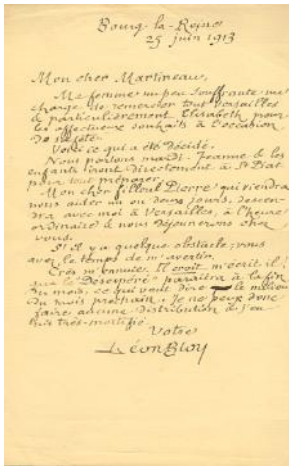 Bourg-la-Reine
25 juin 1913
Mon cher Martineau,
Ma femme un peu souffrante me
charge de remercier tout Versailles
& particulièrement Elisabeth pour
les affectueux souhaits à l'occasion
de sa fête.
Voici ce qui a été décidé.
Nous partons mardi. Jeanne & les
enfants iront directement à St Piat
pour tout préparer.
Mon cher filleul Pierre qui viendra
nous aider un ou deux jours, descen-
dra avec moi à Versailles, à l'heure
ordinaire & nous déjeunerons chez
vous.
S'il y a quelque obstacle, vous
avez le temps de m'avertir.
Crès m'ennuie. Il croit, m'écrit-il,
que le Désespéré paraîtra à la fin
du mois, ce qui veut dire le milieu
du mois prochain. Je ne peux donc
faire aucune distribution & j'en
suis très-mortifié.
Votre
Léon Bloy